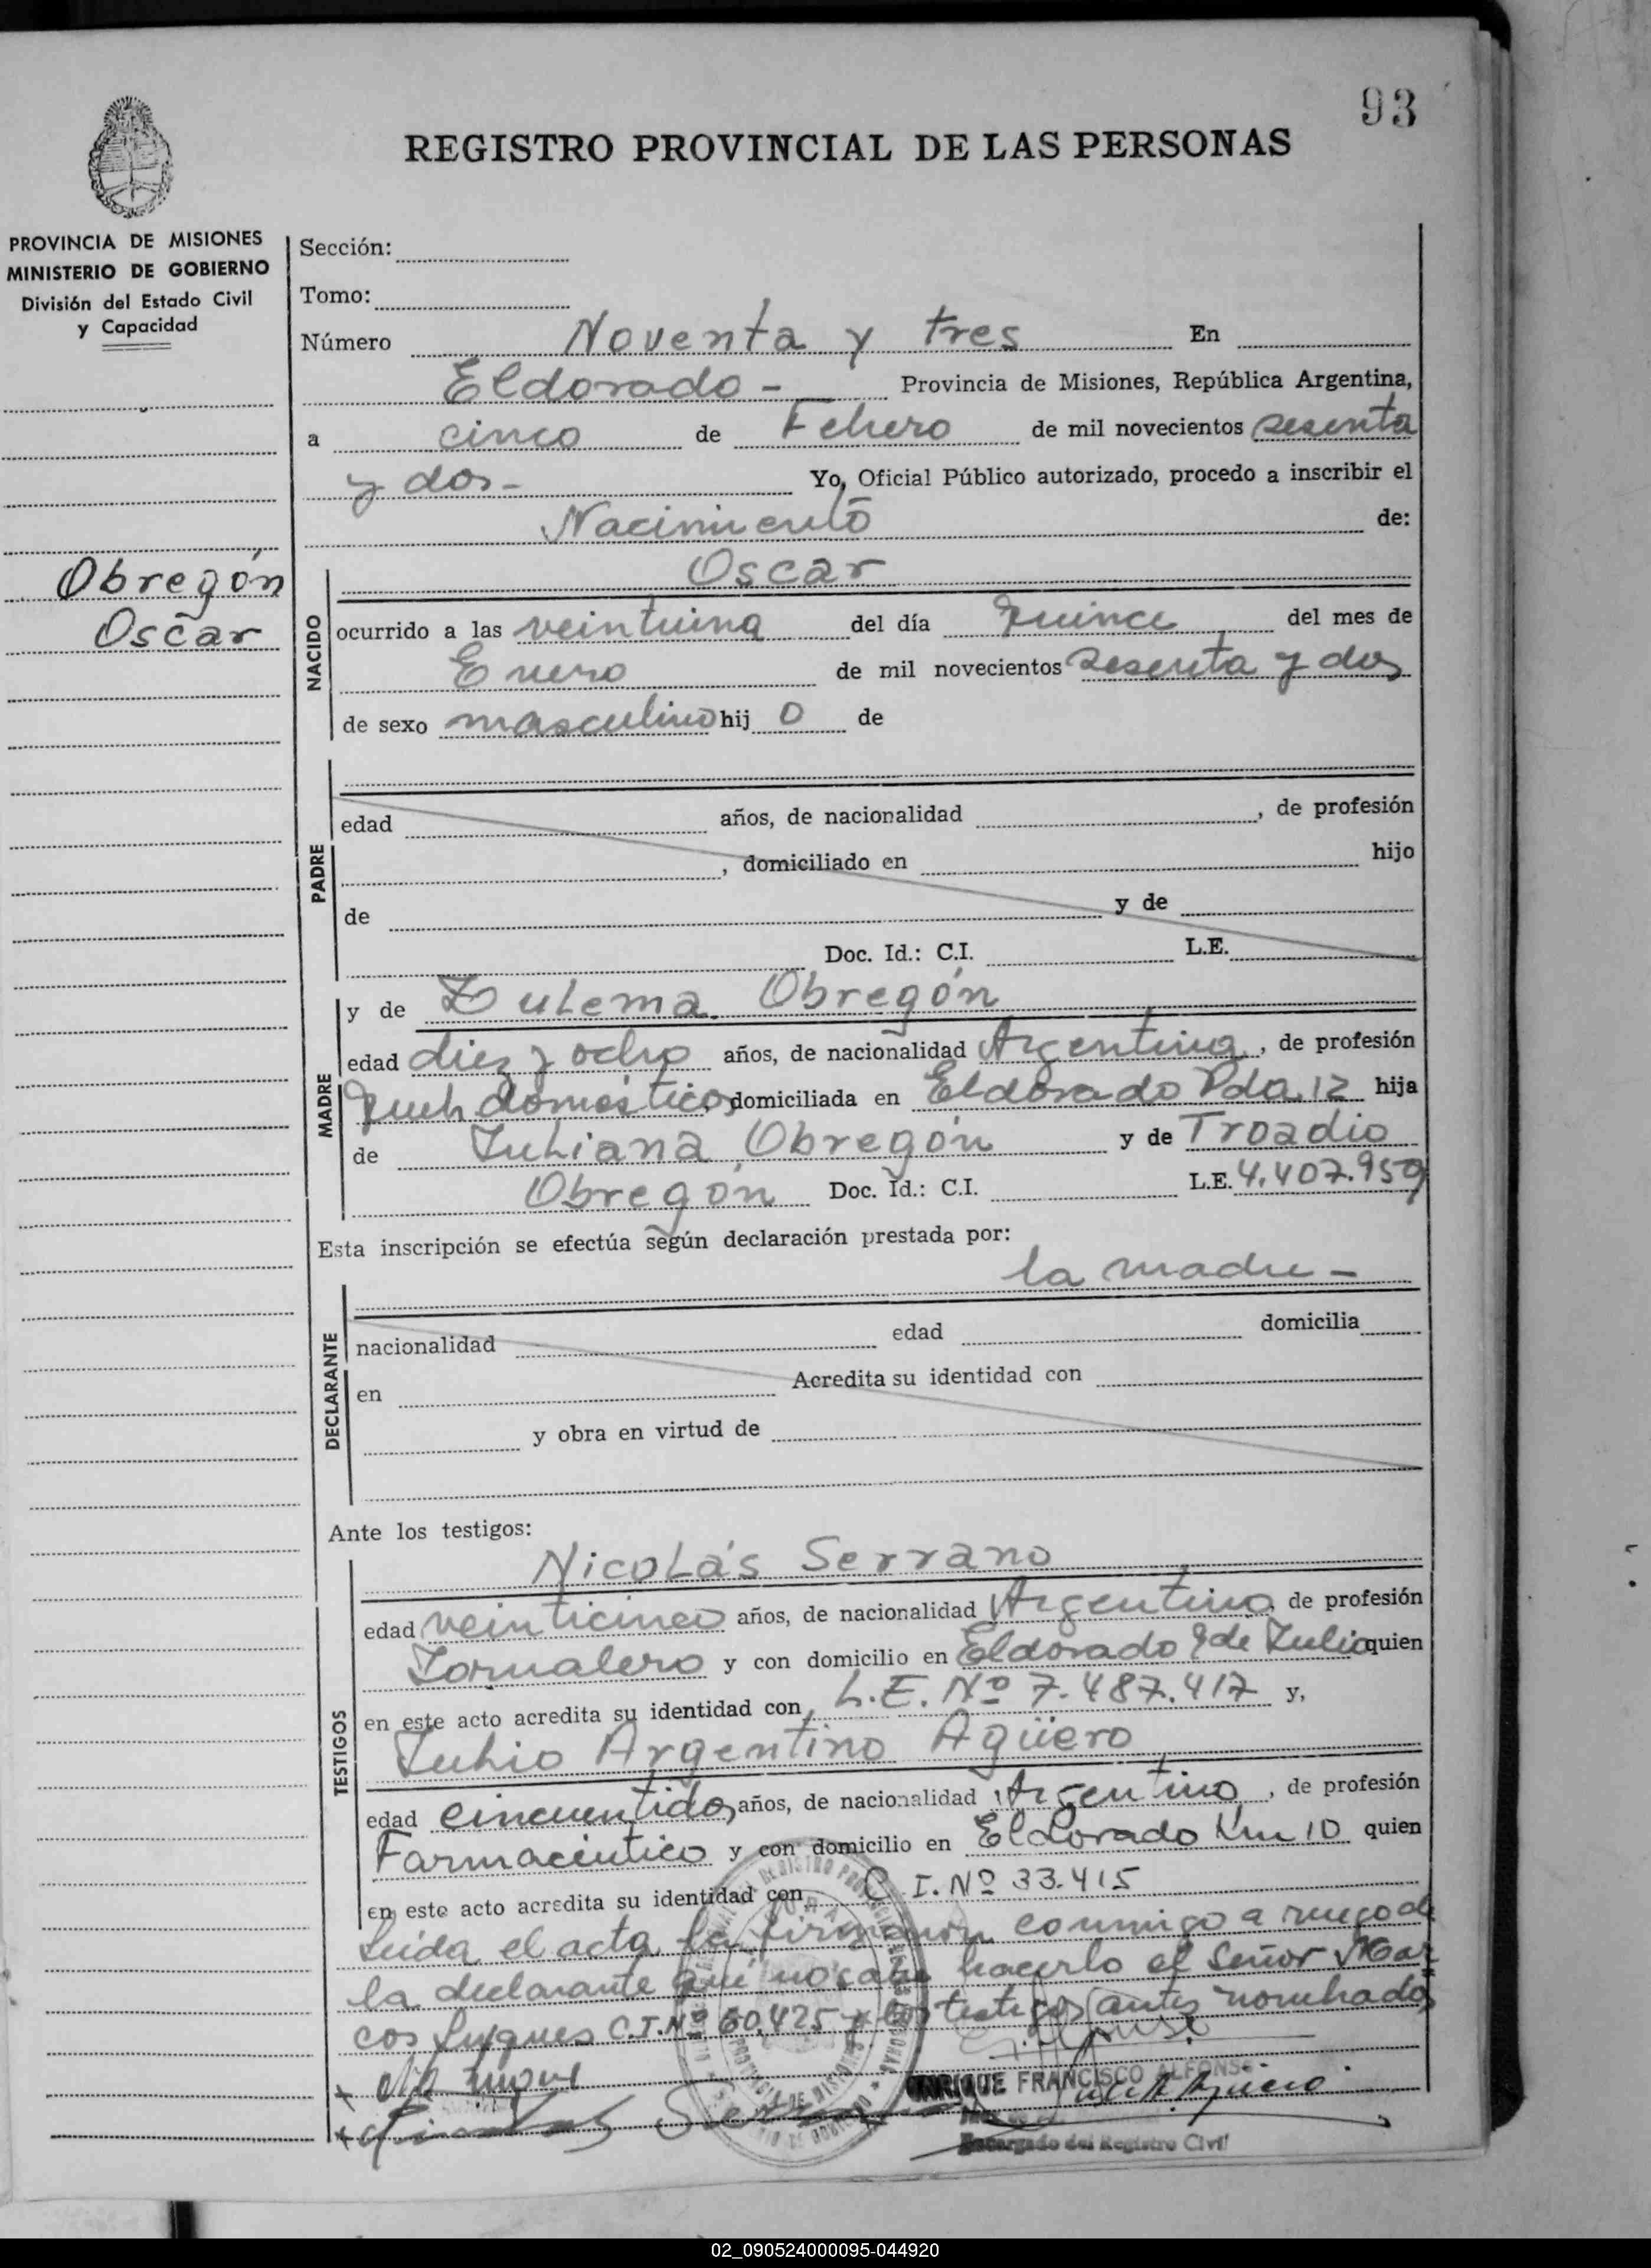 93
REGISTRO PROVINCIAL DE LAS PERSONAS
PROVINCIA DE MISIONES
MINISTERIO DE GOBIERNO
División del Estado Civil
y Capacidad
Obregón
Oscar
Sección:
Tomo:
Número Noventa y tres En
Eldorado - Provincia de Misiones, República Argentina,
a cinco de Febrero de mil novecientos sesenta
y dos - Yo, Oficial Público autorizado, procedo a inscribir el
Nacimiento de:
NACIDO
Oscar
ocurrido a las veintiuna del día quince del mes de
Enero de mil novecientos sesenta y dos
de sexo masculino hij o de
PADRE
edad años, de nacionalidad , de profesión
, domiciliado en hijo
de y de
Doc. Id.: C.I. L.E.
MADRE
y de Zulema Obregón
edad diez y ocho años, de nacionalidad Argentina, de profesión
Queh domésticos, domiciliada en Eldorado Pda. 12 hija
de Juliana Obregón y de Troadio
Obregón Doc. Id.: C.I. L.E. 4.407.959
Esta inscripción se efectúa según declaración prestada por:
la madre -
DECLARANTE
nacionalidad edad domicilia
en Acredita su identidad con
y obra en virtud de
Ante los testigos:
TESTIGOS
Nicolás Serrano
edad veinticinco años, de nacionalidad Argentino, de profesión
Jornalero y con domicilio en Eldorado 9 de Julio quien
en este acto acredita su identidad con L.E. Nº 7.487.417 y,
Julio Argentino Agüero
edad cincuentidos años, de nacionalidad Argentino, de profesión
Farmacéutico y con domicilio en Eldorado Km 10 quien
en este acto acredita su identidad con C.I. Nº 33.415
Leida el acta, la firmaron conmigo a ruego de
la declarante que no sabe hacerlo el Señor Mar=
cos Luques C.I. Nº 60.425 y los testigos antes nombrados
ENRIQUE FRANCISCO ALFONSO
Encargado del Registro Civil
02_090524000095-044920